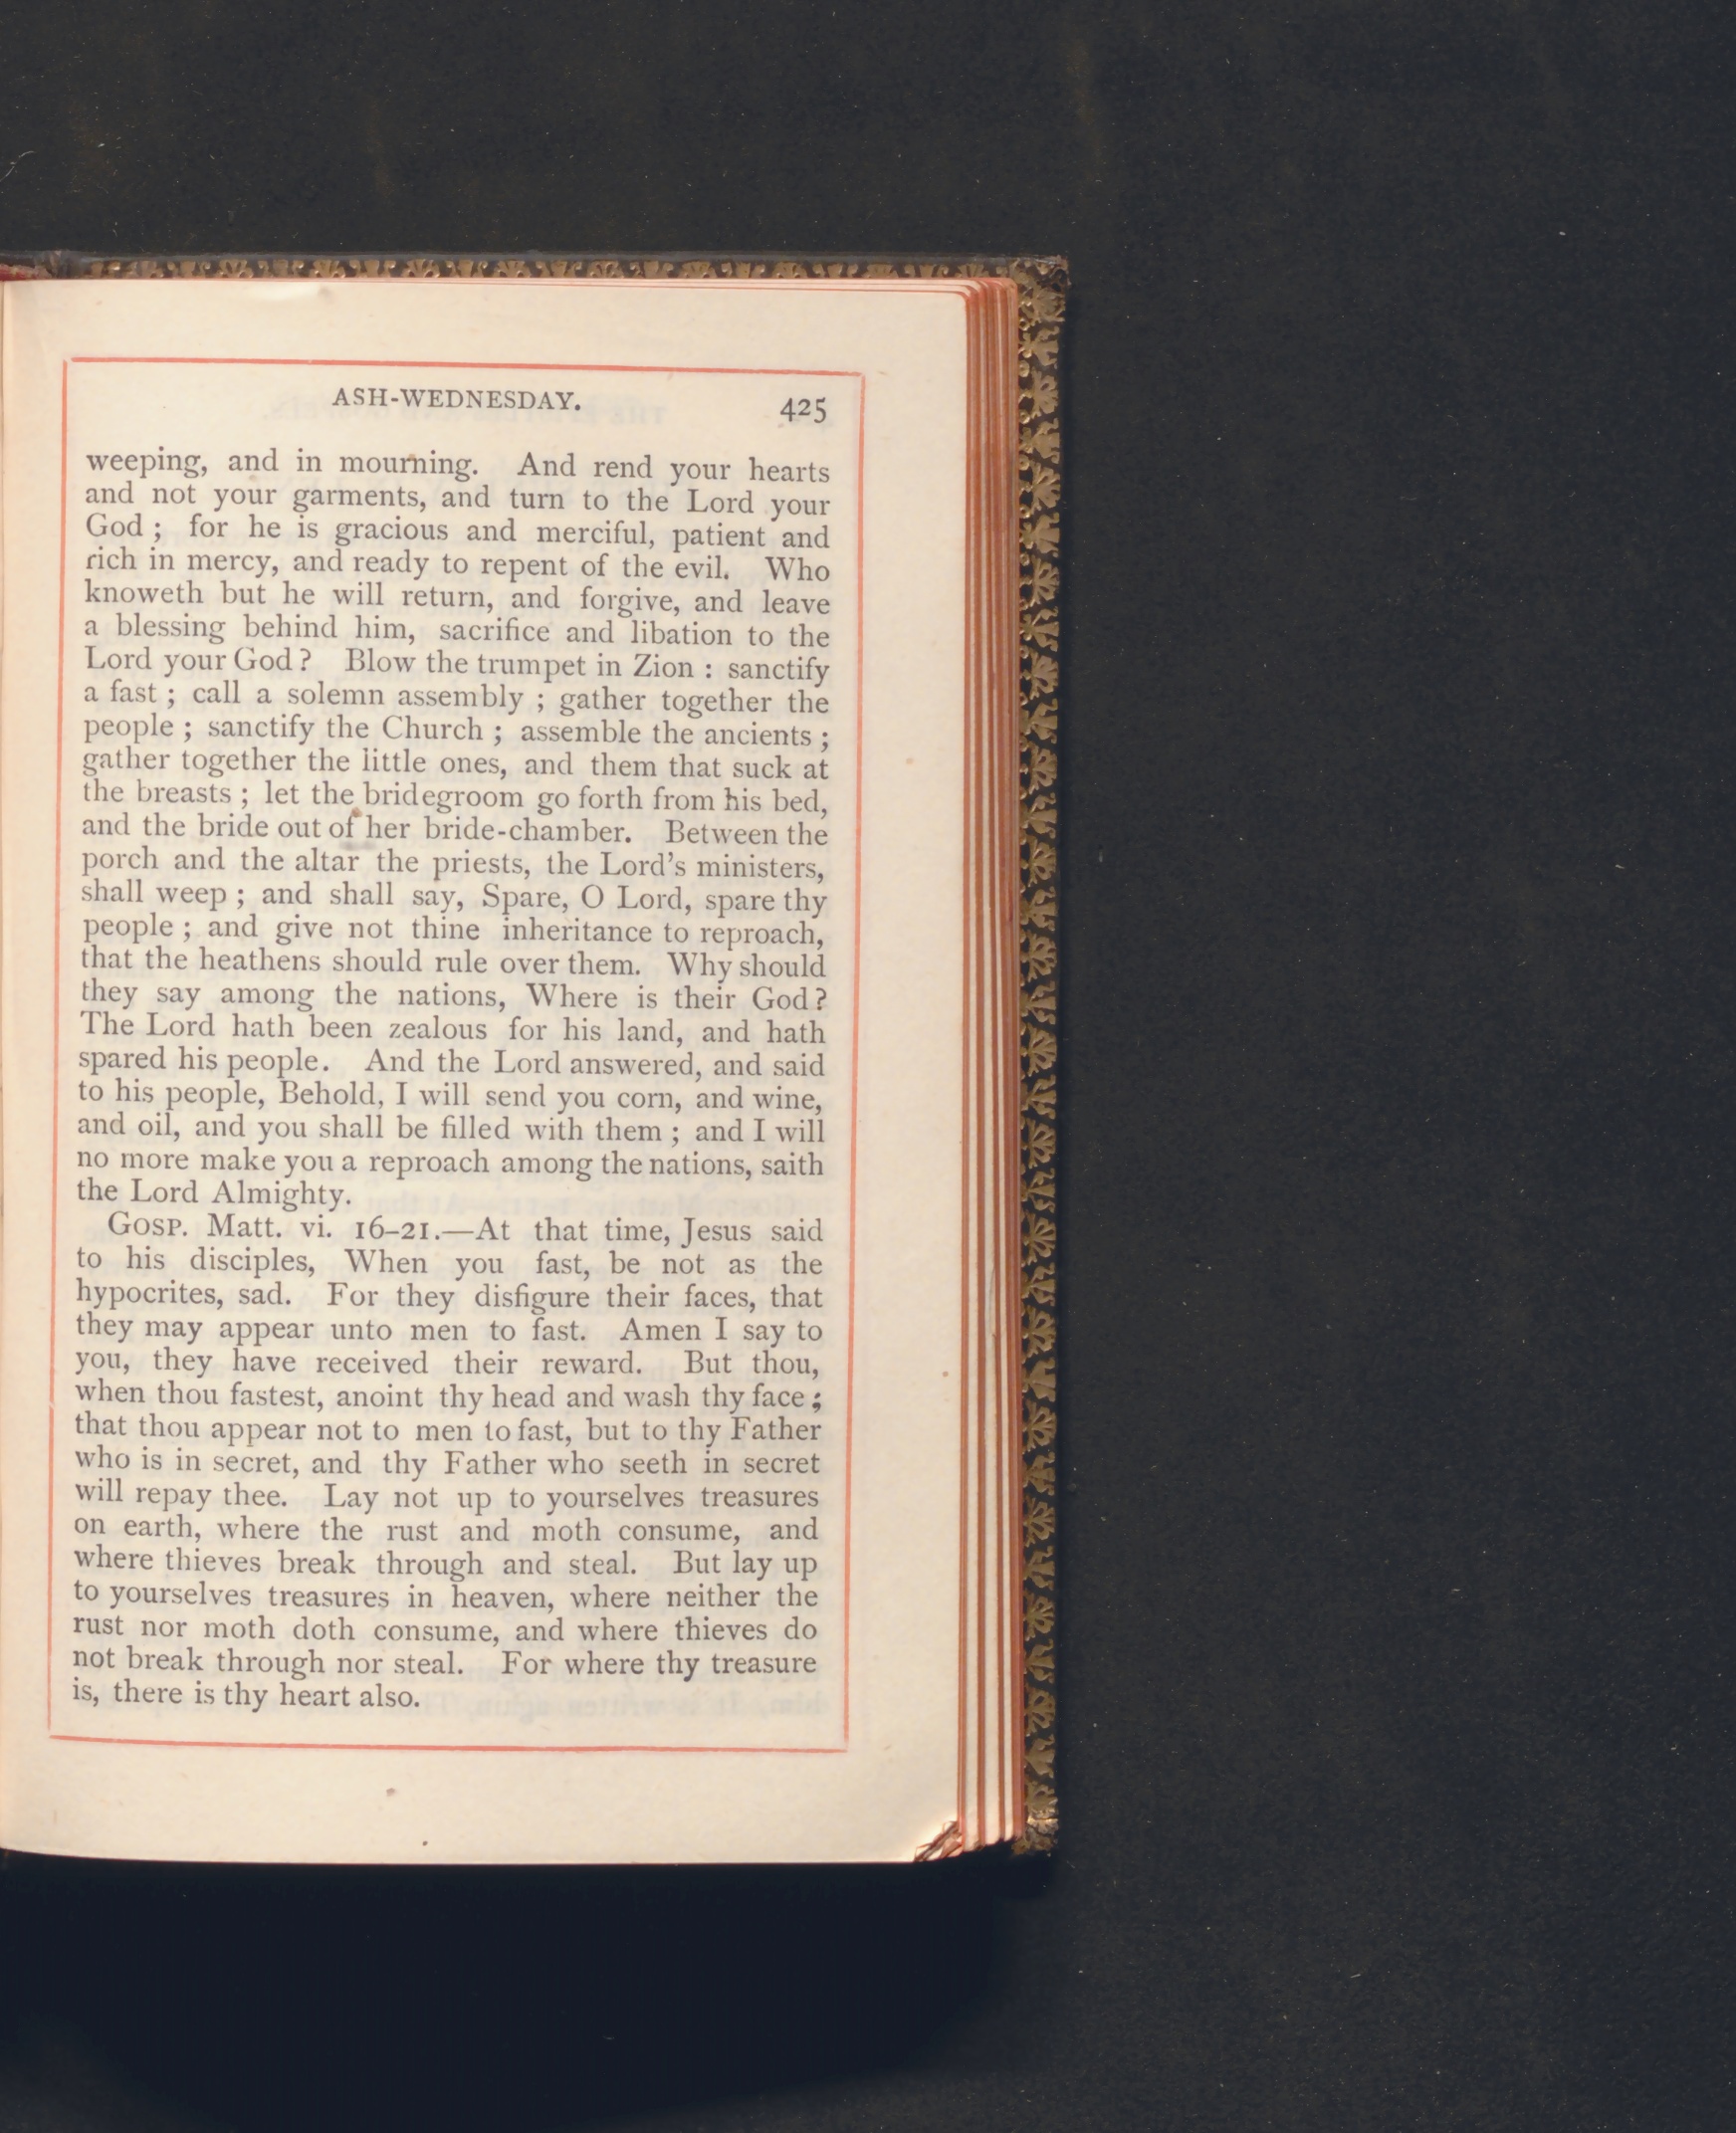 ASH-WEDNESDAY. 425
weeping, and in mourning. And rend your hearts
and not your garments, and turn to the Lord your
God ; for he is gracious and merciful, patient and
rich in mercy, and ready to repent of the evil. Who
knoweth but he will return, and forgive, and leave
a blessing behind him, sacrifice and libation to the
Lord your God ? Blow the trumpet in Zion : sanctify
a fast ; call a solemn assembly ; gather together the
people ; sanctify the Church ; assemble the ancients ;
gather together the little ones, and them that suck at
the breasts ; let the bridegroom go forth from his bed,
and the bride out of her bride-chamber. Between the
porch and the altar the priests, the Lord's ministers,
shall weep ; and shall say, Spare, O Lord, spare thy
people ; and give not thine inheritance to reproach,
that the heathens should rule over them. Why should
they say among the nations, Where is their God ?
The Lord hath been zealous for his land, and hath
spared his people. And the Lord answered, and said
to his people, Behold, I will send you corn, and wine,
and oil, and you shall be filled with them ; and I will
no more make you a reproach among the nations, saith
the Lord Almighty.
GOSP. Matt. vi. 16–21.—At that time, Jesus said
to his disciples, When you fast, be not as the
hypocrites, sad. For they disfigure their faces, that
they may appear unto men to fast. Amen I say to
you, they have received their reward. But thou,
when thou fastest, anoint thy head and wash thy face ;
that thou appear not to men to fast, but to thy Father
who is in secret, and thy Father who seeth in secret
will repay thee. Lay not up to yourselves treasures
on earth, where the rust and moth consume, and
where thieves break through and steal. But lay up
to yourselves treasures in heaven, where neither the
rust nor moth doth consume, and where thieves do
not break through nor steal. For where thy treasure
is, there is thy heart also.